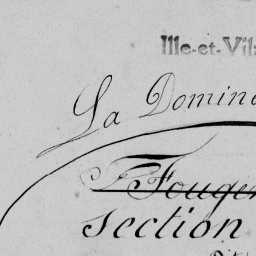 Ille-et-Vil
La Domin
Fouge
section